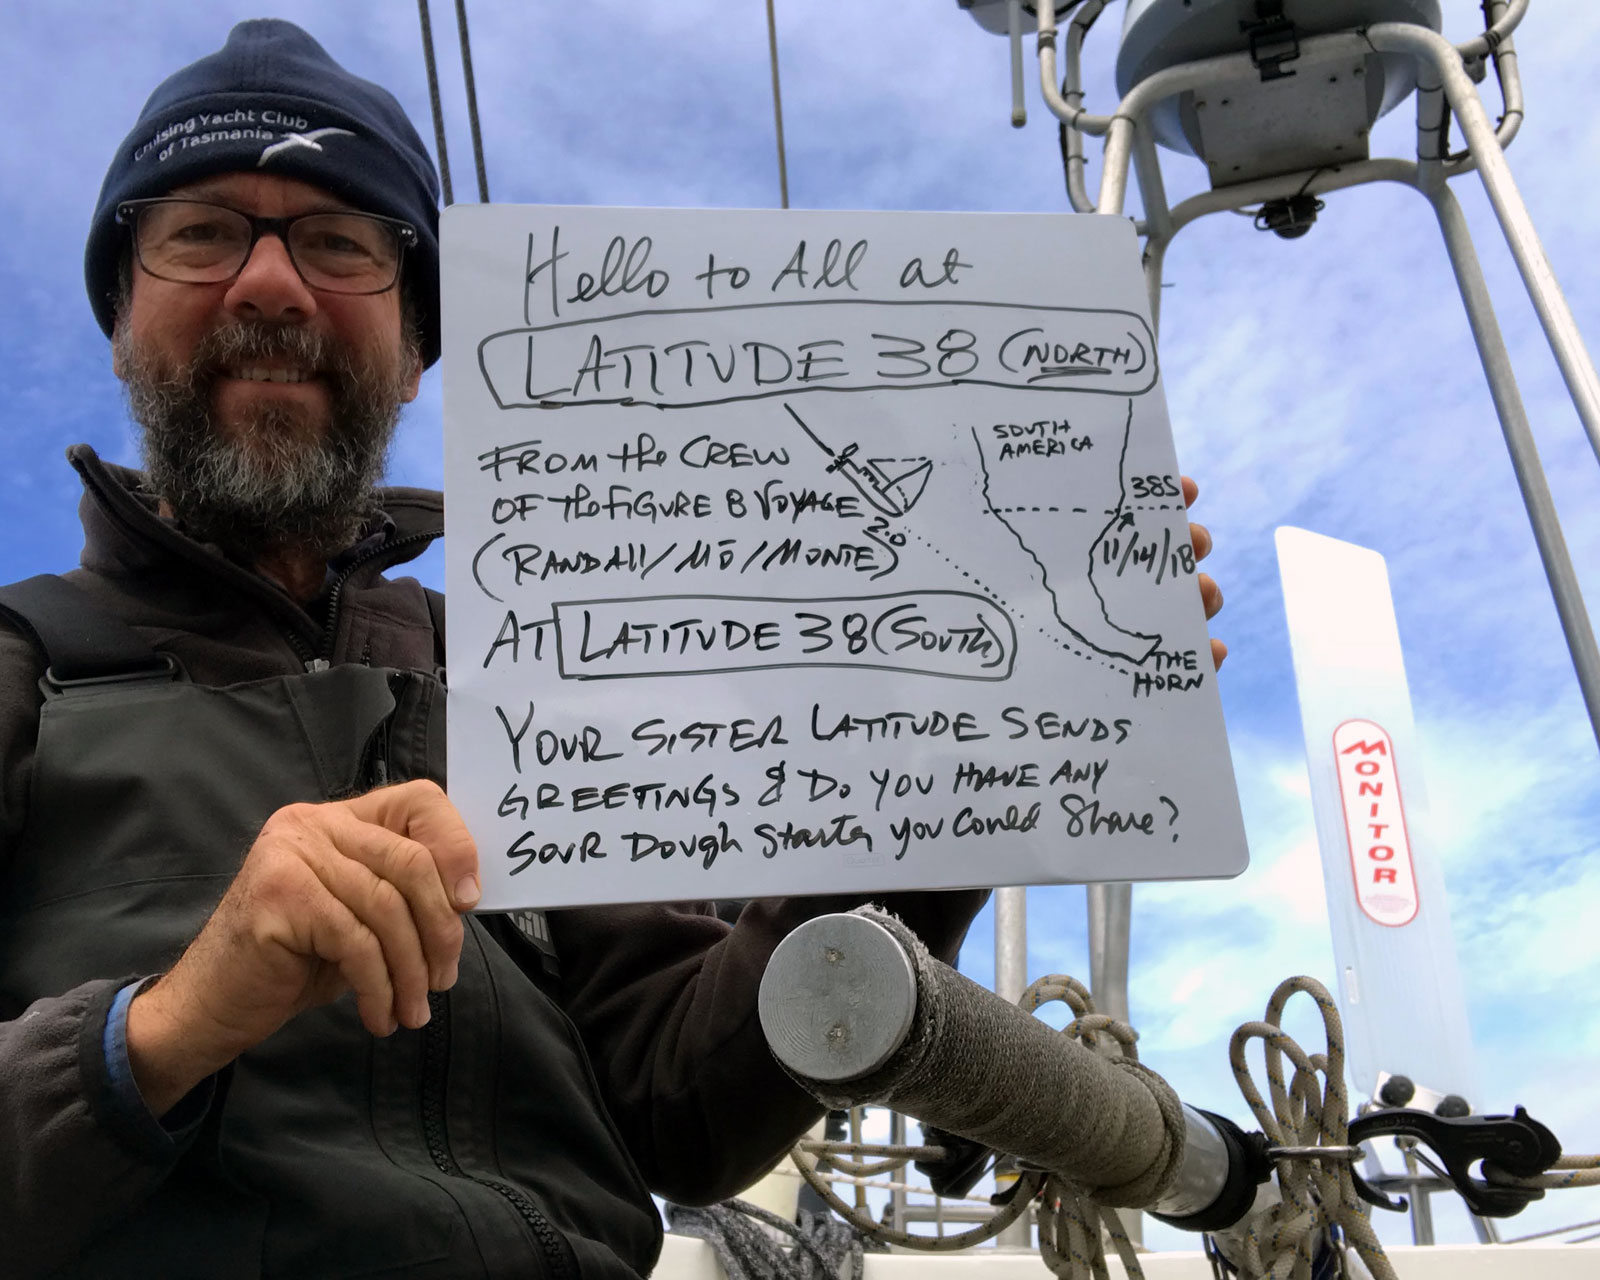 Cruising Yacht Club
of Tasmania
Hello to All at
LATITUDE 38 (NORTH)
FROM the CREW
OF the FIGURE 8 VOYAGE
2.0
(RANDAll/MŌ/MONTE)
AT LATITUDE 38 (SOUTH)
SOUTH
AMERICA
38S
11/14/18
THE
HORN
YOUR SISTER LATITUDE SENDS
GREETINGS & DO YOU HAVE ANY
SOUR DOUGH Starter you Could Share?
Quartet
MONITOR